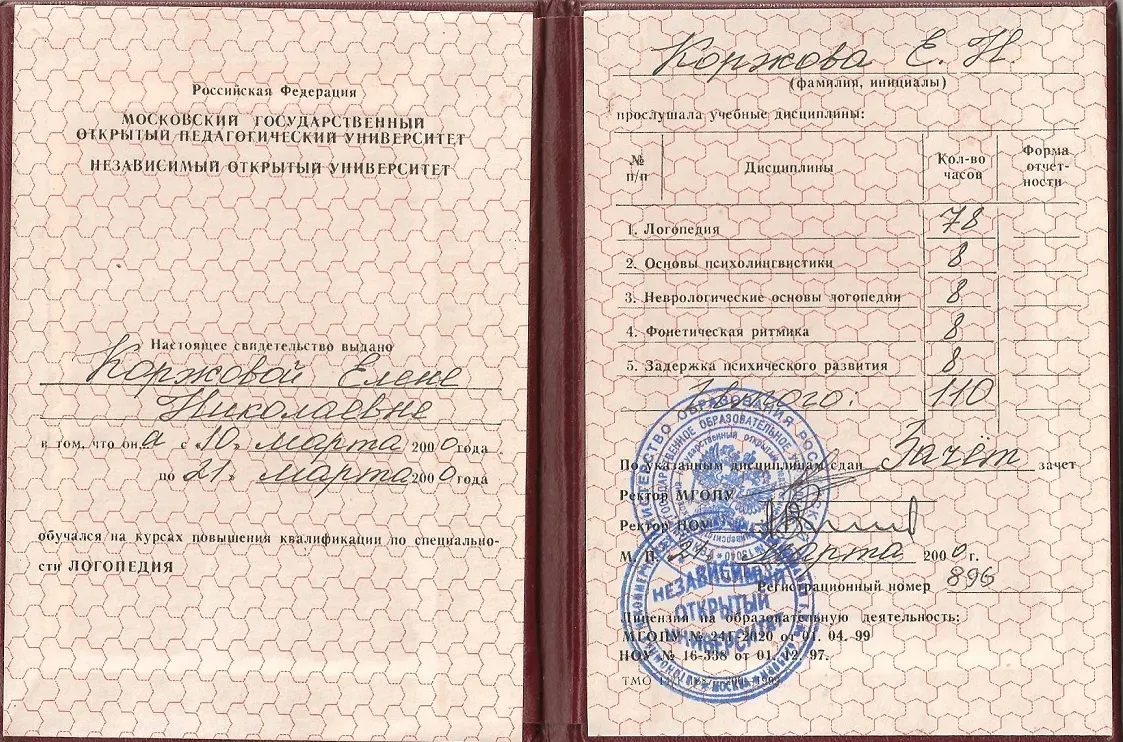 Российская Федерация
МОСКОВСКИЙ ГОСУДАРСТВЕННЫЙ
ОТКРЫТЫЙ ПЕДАГОГИЧЕСКИЙ УНИВЕРСИТЕТ
НЕЗАВИСИМЫЙ ОТКРЫТЫЙ УНИВЕРСИТЕТ
Настоящее свидетельство выдано
Коржовой Елене
Николаевне
в том, что она с 10 марта 2000 года
по 21 марта 2000 года
обучался на курсах повышения квалификации по специально-
сти ЛОГОПЕДИЯ
Коржова Е. Н.
(фамилия, инициалы)
прослушала учебные дисциплины:
№ п/п Дисциплины Кол-во часов Форма отчет-ности
1. Логопедия 78
2. Основы психолингвистики 8
3. Неврологические основы логопедии 8
4. Фонетическая ритмика 8
5. Задержка психического развития 8
110
По указанным дисциплинам сдан Зачёт зачет
Ректор МГОПУ
Ректор НОУ
М. П. 21 марта 2000 г.
Регистрационный номер 896
Лицензия на образовательную деятельность:
МГОПУ № 241-2020 от 01. 04. 99
НОУ № 16-338 от 01. 12. 97.
ТМО
НЕЗАВИСИМЫЙ
ОТКРЫТЫЙ
УНИВЕРСИТЕТ
МОСКВА